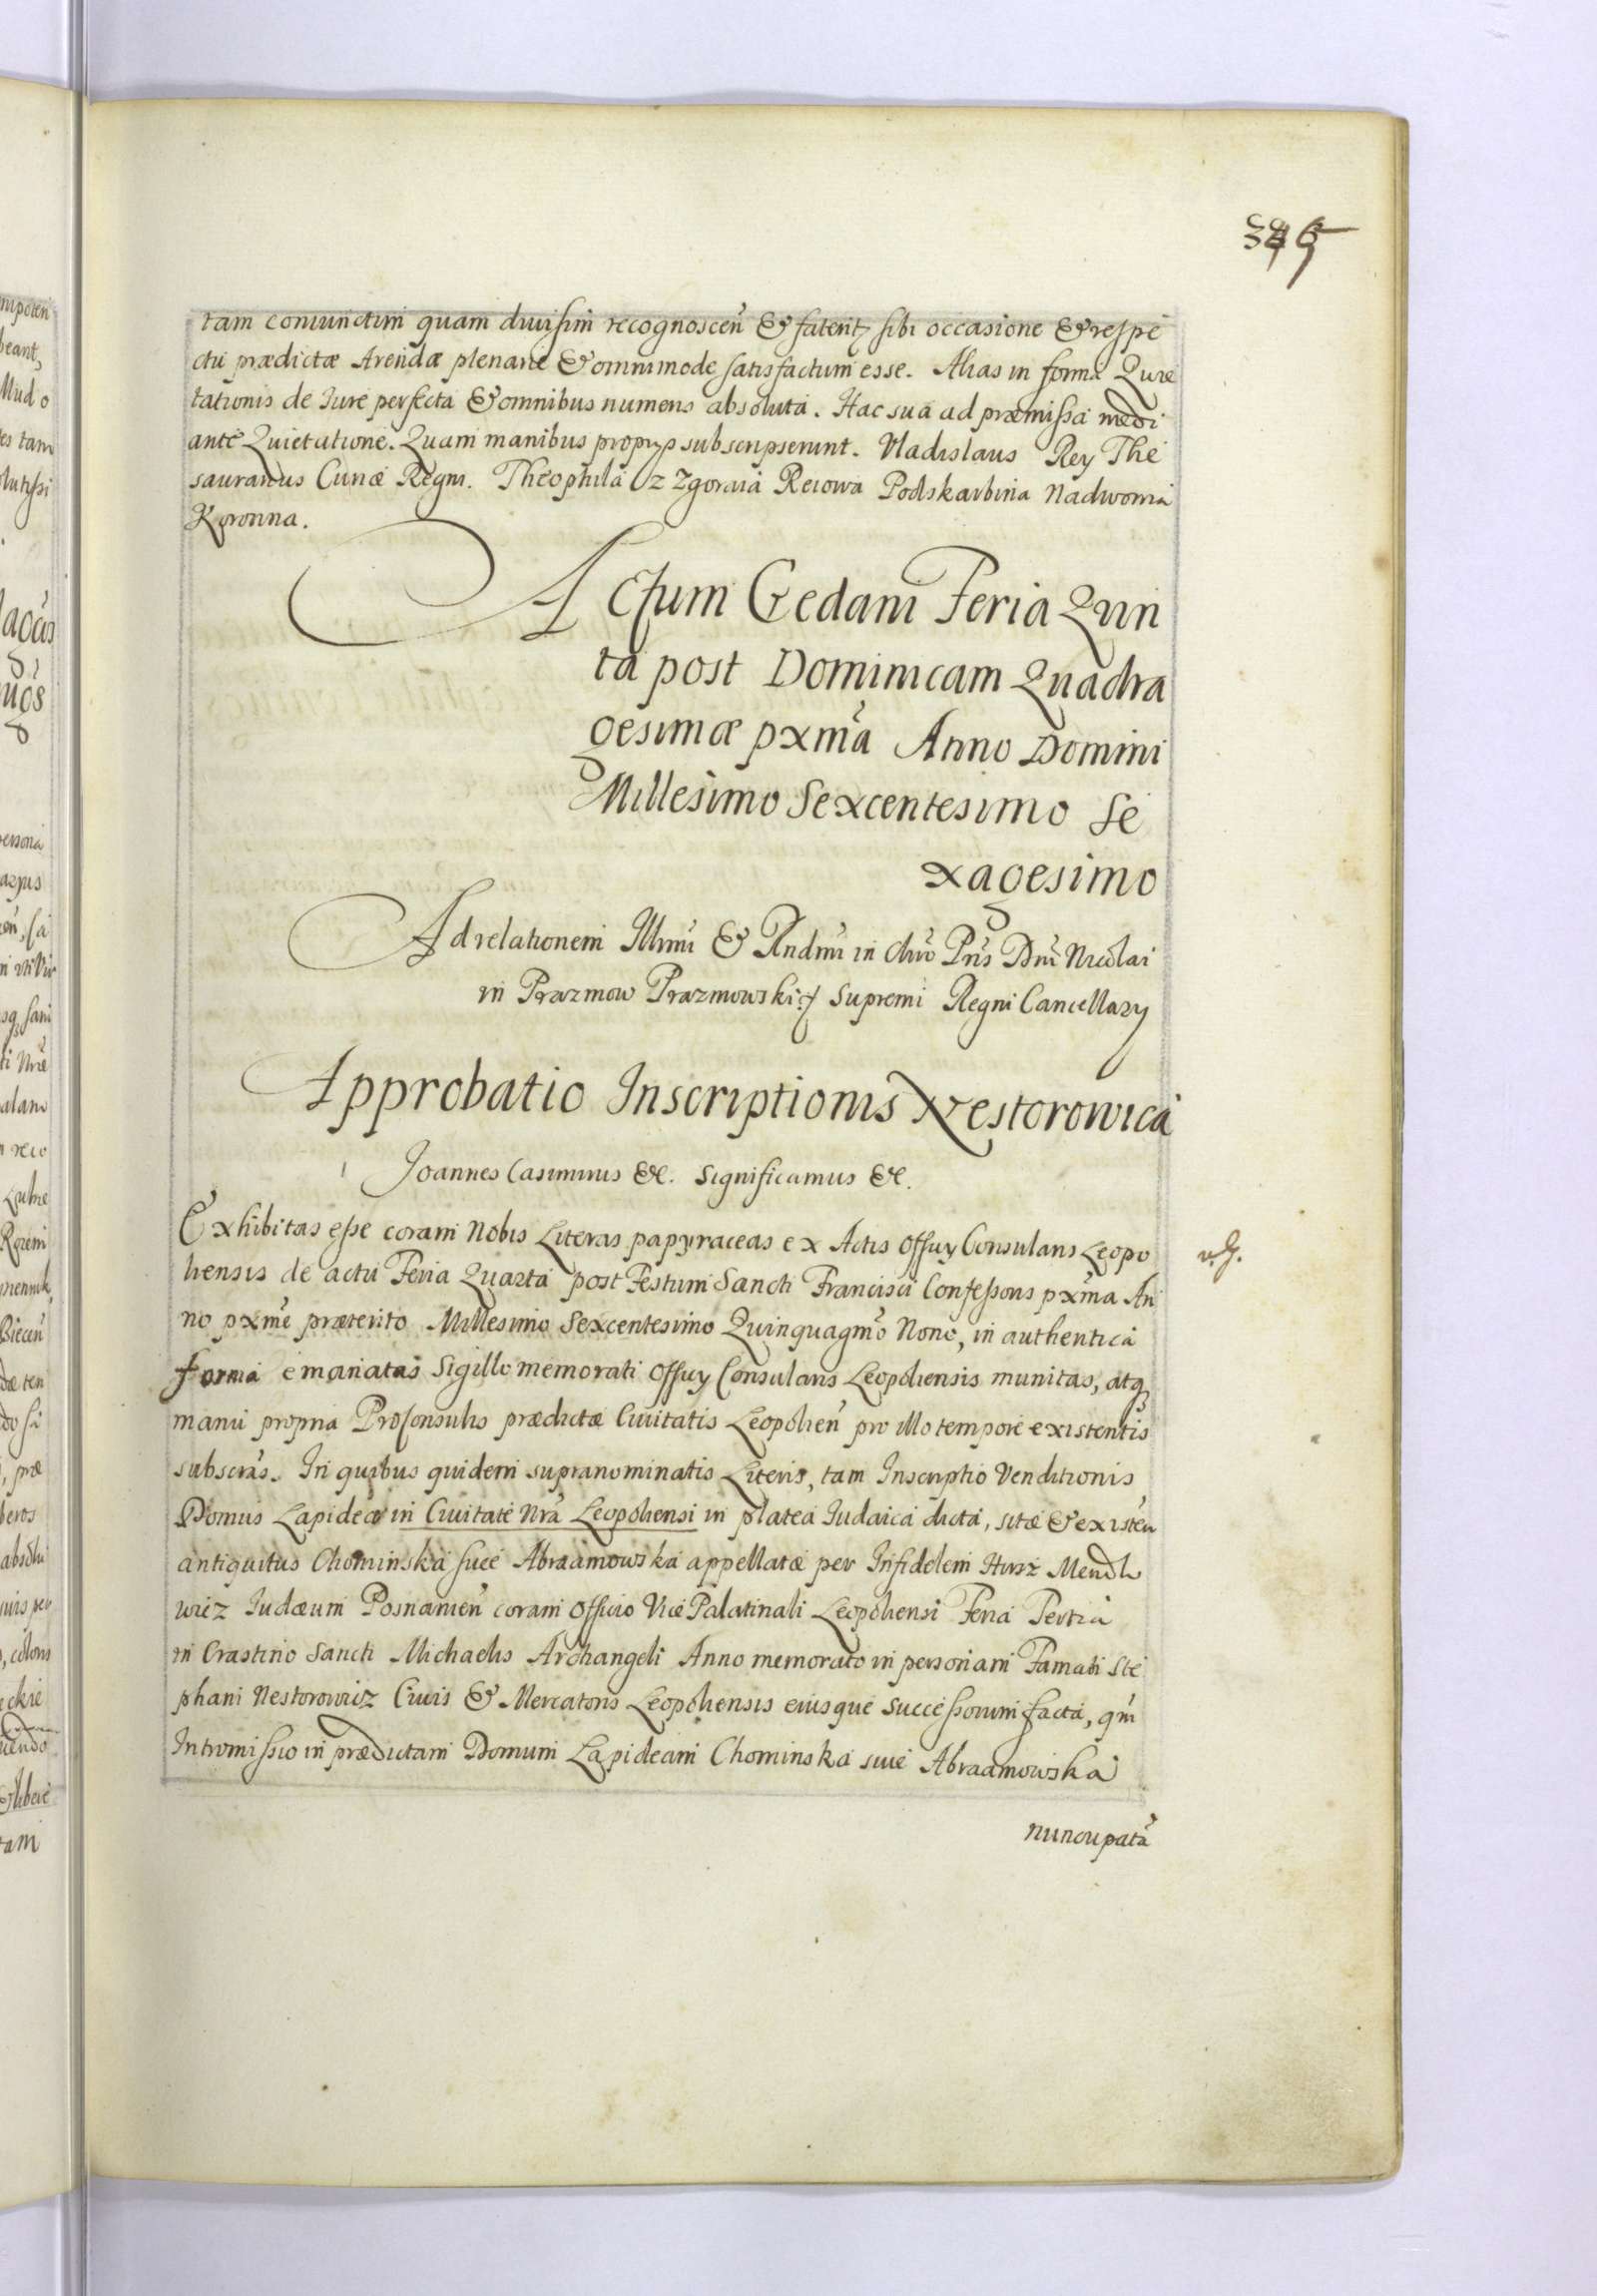 tam coniunctim quam diuisim recognoscen̄ & fatent̄ sibi occasione & respe
ctu prædictæ Arendæ plenarie & omnimode satisfactum esse. Alias in forma Quie
tationis de Iure perfecta & omnibus numeris absoluta. Hac sua ad præmissa medi
ante Quietatione. Quam manibus proprys subscripserunt. Vladislaus Rey The
saurarius Curiæ Regni. Theophila z Zgoraia Reiowa Podskarbina Nadworna
Koronna.
Actum Gedani Feria Quin
ta post Dominicam Quadra
gesimæ pxmā Anno Domini
Millesimo Sexcentesimo Se
xagesimo
Ad relationem Illrmi & Rndmi in Chro Pris Dni Nicolai
in Prazmow Prazmowski Supremi Regni Cancellary
Approbatio Inscriptionis Nestorowicā
Joannes Casimirus &c. Significamus &c.
Exhibitas esse coram Nobis Literas papyraceas ex Actis Offuy Consularis Leopo
liensis de actu Feria Quarta post Festum Sancti Francisci Confessoris pxma An
no pxme præterito Millesimo Sexcentesimo Quinquagmo Nono, in authentica
forma emanatas Sigillo memorati Offuy Consularis Leopoliensis munitas, atq
manu propria Proconsulis prædictæ Ciuitatis Leopolien̄ pro illo tempore existentis
subscras. In quibus quidem supranominatis Literis, tam Inscriptio Venditionis
Domus Lapideæ in Ciuitate Nrā Leopoliensi in platea Iudaica dicta, sitæ & existen̄
antiquitus Chominska siue Abraamowska appellatæ per Infidelem Hersz Mendlo
wicz Iudæum Posnanien̄ coram Officio Vice Palatinali Leopoliensi Feria Tertia
in Crastino Sancti Michaelis Archangeli Anno memorato in personam Famati Ste
phani Nestorowicz Ciuis & Mercatoris Leopoliensis eiusque Successorum facta, qm̄
Intromissio in prædictam Domum Lapideam Chominska siue Abraamowska
nuncupatā